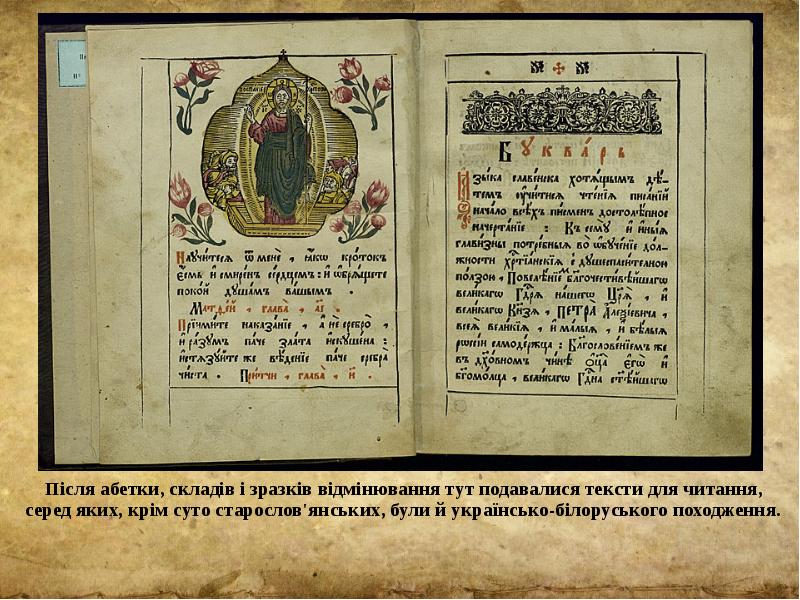 Научитеся ѿ менє̀ , ꙗкѡ кротокъ
є҆смь и҆ смиренъ сердцемъ : и҆ ѡ҆брѧщете
покой душамъ вашымъ .
Матѳей , глава̀ , а҃і .
Прїимите наказанїе , а҆ не сребро̀ ,
и҆ разумъ паче злата искушена :
и҆стѧзуйте же вѣденїе паче сребра
чиста . Притчи , глава̀ , и҃ .
Букварь
Ꙗзыка славенска хотѧщымъ дѣ-
темъ оучитисѧ чтенїѧ писанїй
начало всѣхъ писменъ достолѣпное
начертанїе : Къ сему и҆ и҆ныѧ
главизны потребныѧ во ѡ҆бученїе дол-
жности хр҃тїанскїѧ с̾ душеспасителною
ползою , Повелѣнїемъ бл҃гочестивѣйшагѡ
великагѡ Гд҃рѧ нашегѡ Цр҃ѧ , и҆
великагѡ Кнѧзѧ , ПЕТРА Алеѯїевича ,
всеѧ великїѧ , и҆ малыѧ , и҆ бѣлыѧ
рѡссїи самодержца : Бл҃гословенїемъ же
въ дх҃овномъ чинѣ ѻ҆ц҃а Є҆гѡ̀ и҆
бг҃омолца , великагѡ Гд҃на ст҃ѣйшагѡ
Після абетки, складів і зразків відмінювання тут подавалися тексти для читання,
серед яких, крім суто старослов'янських, були й українсько-білоруського походження.